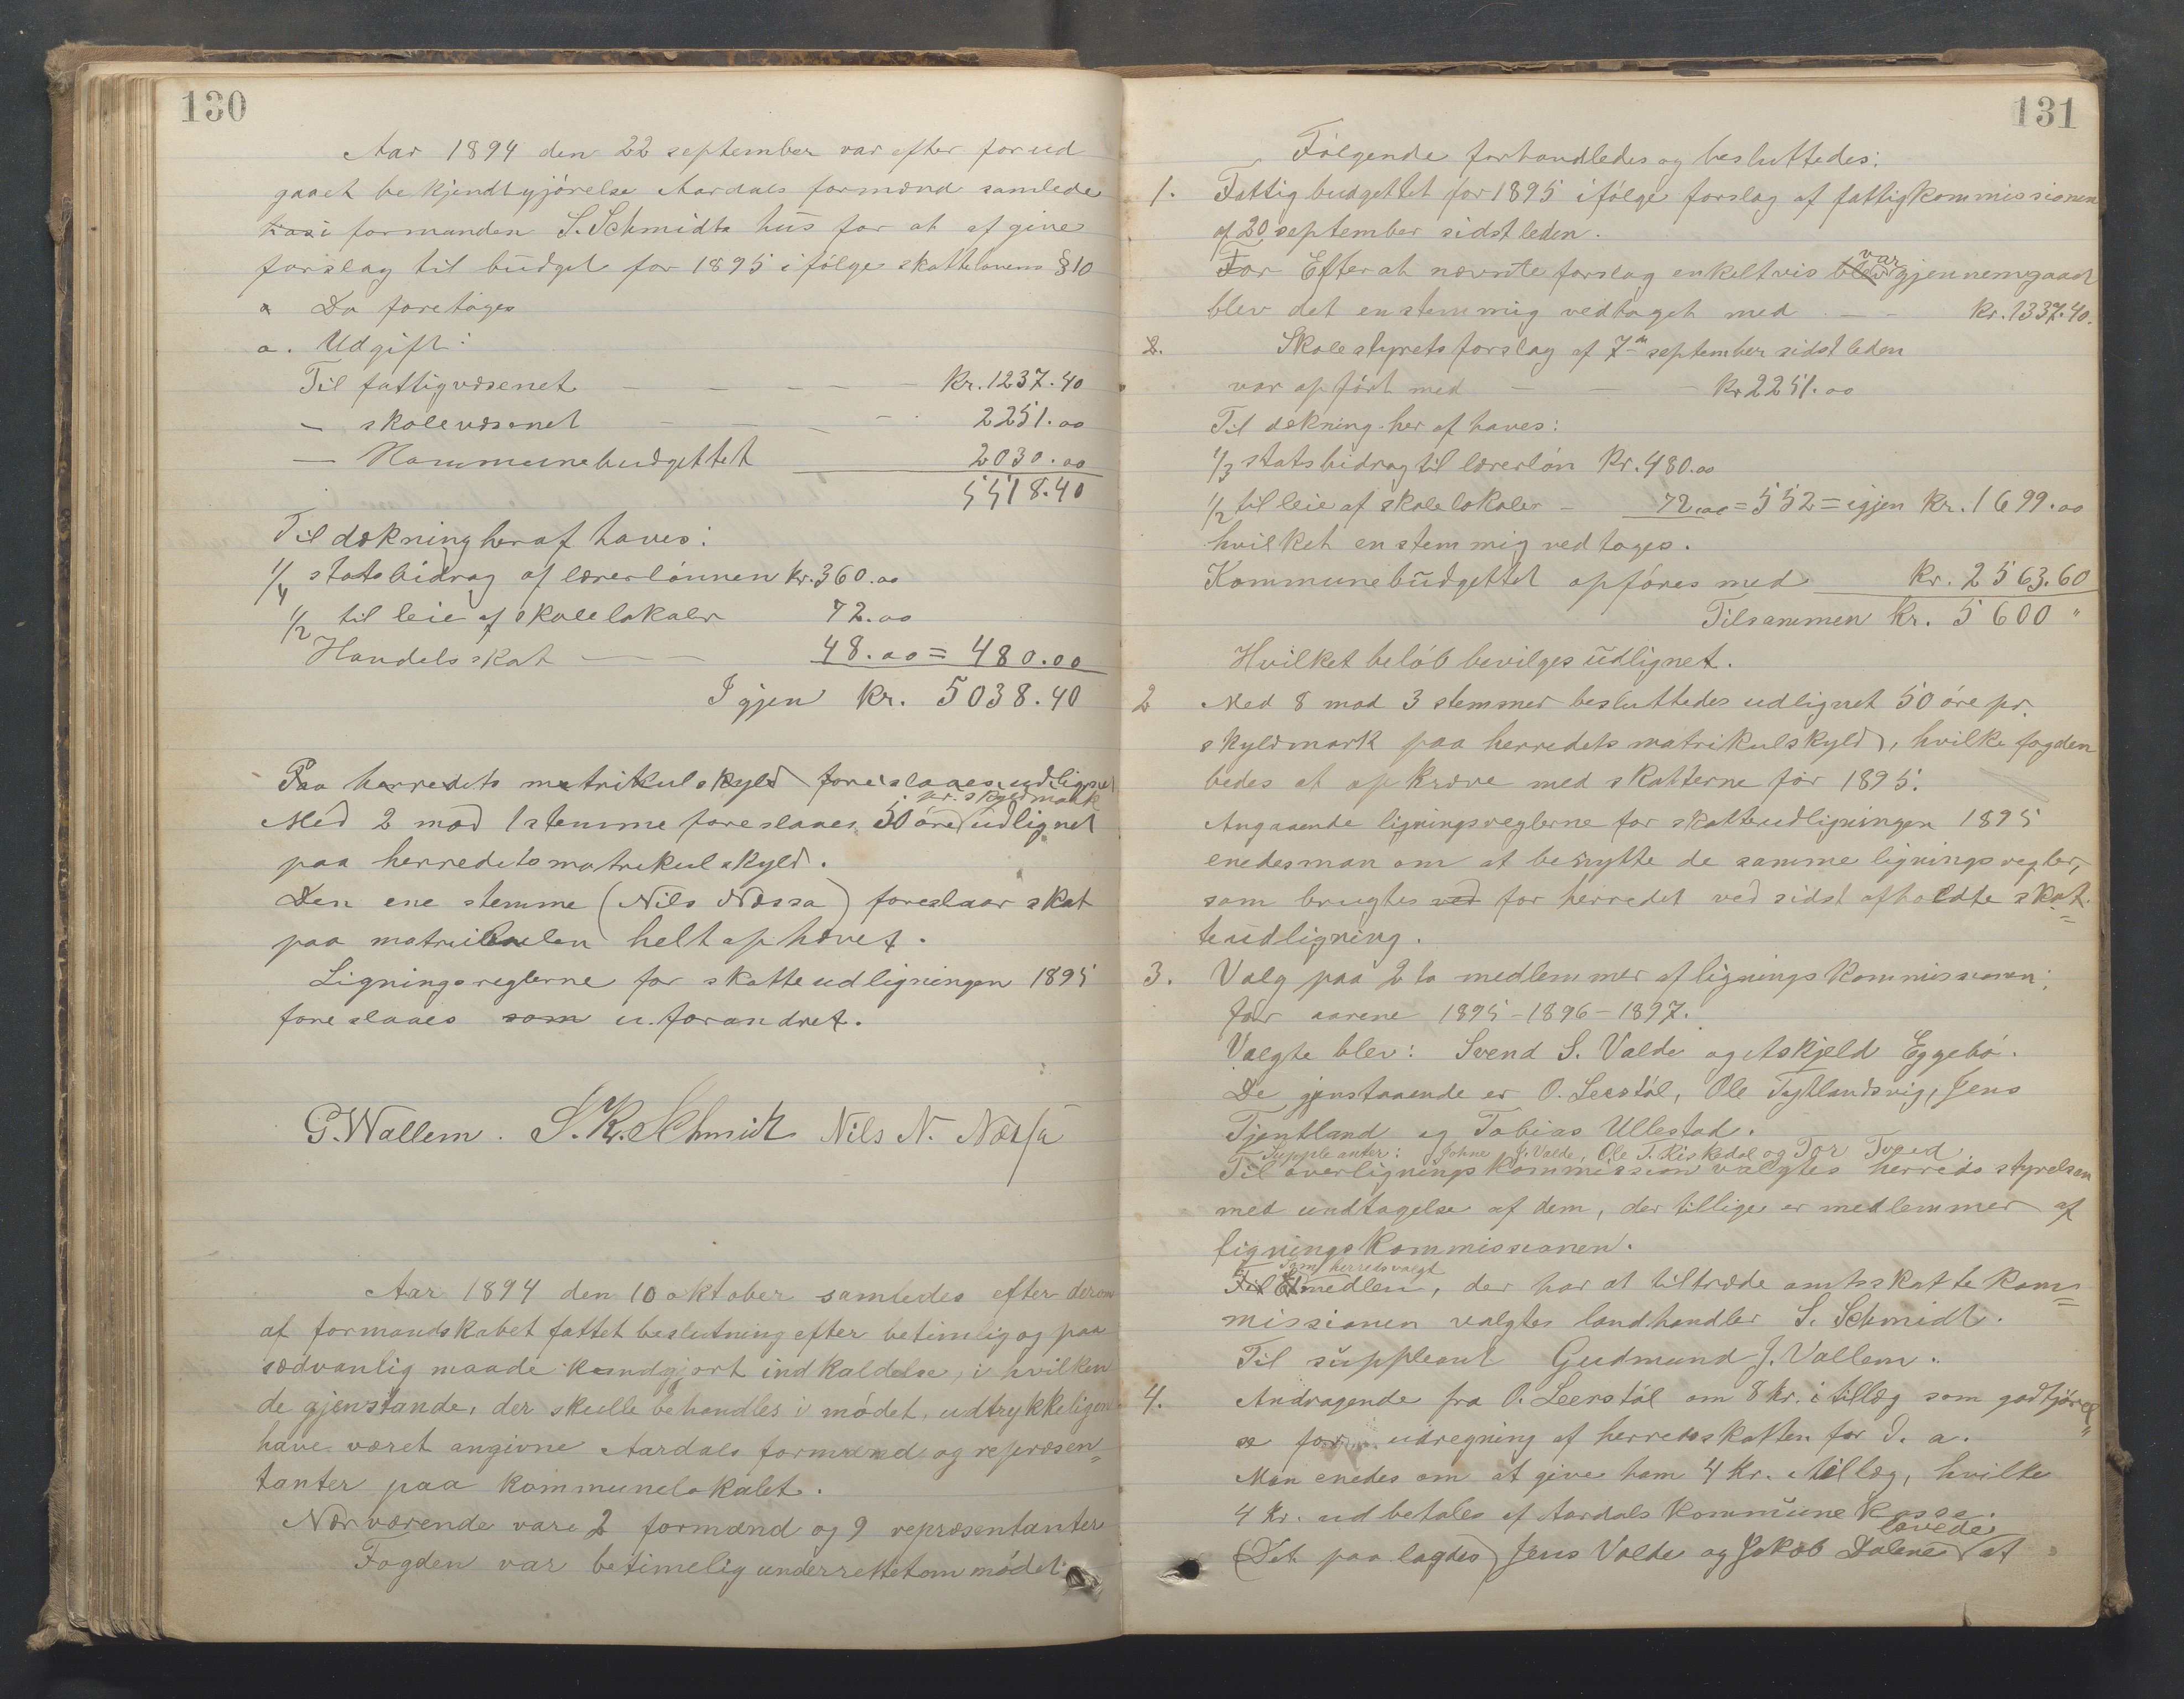 130
Aar 1894 den 22 september var efter forud
gaaet bekjendtgjörelse Aardals formænd samlede
hos i formanden S. Schmidts hus for at afgive
forslag til budget for 1895 ifölge skattelovens § 10
a Da foretoges
a. Udgift:
Til fattigvæsenet — — — — kr. 1237.40
– skolevæsenet — — — — 2251.00
— Kommunebudgettet 2030.00
5518.40
Til dækning heraf haves:
1/4 statsbidrag af lærerlönnen kr. 360.00
1/2 til leie af skolelokaler 72.00
Handelsskat — — 48.00 = 480.00
Igjen kr. 5038.40
Paa herredets matrikulskyld foreslaaes udlignet
pr. skyldmark
Med 2 mod 1 stemme foreslaaes 50 öre udlignet
paa herredets matrikulskyld.
Den ene stemme (Nils Næssa) foreslaar skat
paa matrikulen helt ophævet.
Ligningsreglerne for skatteudligningen 1895
foreslaaes som uforandret.
G. Wallem. S. K. Schmidt Nils N. Næssa
Aar 1894 den 10 oktober samledes efter derom
af formandskabet fattet beslutning efter betimlig og paa
sædvanlig maade kundgjort indkaldelse, i hvilken
de gjenstande, der skulle behandles i mödet, udtrykkeligen
have været angivne Aardals formænd og repræsen=
tanter paa kommunelokalet.
Nærværende vare 2 formænd og 9 repræsentanter
Fogden var betimelig underrettet om mödet.
131
Fölgende forhandledes og besluttedes:
1. Fattigbudgettet for 1895 ifölge forslag af fattigkommissionen
af 20 september sidstleden.
var
For Efter at nævnte forslag enkeltvis blev gjennemgaaet
blev det enstemmig vedtaget med — — kr. 1337.40.
2. Skolestyrets forslag af 7de september sidstleden
var opfört med — — — kr 2251.00
Til dækning heraf haves:
1/3 statsbidrag til lærerlön kr. 480.00
1/2 til leie af skolelokaler – 72.00 = 552 = igjen kr. 1699.00
hvilket enstemmig vedtages.
Kommunebudgettet opföres med kr. 2563.60
Tilsammen kr. 5600 "
Hvilket belöb bevilges udlignet.
2 Med 8 mod 3 stemmer besluttedes udlignet 50 öre pr.
skyldmark paa herredets matrikulskyld, hvilke fogden
bedes at opkræve med skatterne for 1895.
Angaaende ligningsreglerne for skatteudligningen 1895
enedes man om at benytte de samme ligningsregler,
som brugtes ved for herredet ved sidst afholdte skat=
teudligning.
3. Valg paa 2 to medlemmer af ligningskommissionen:
for aarene 1895–1896–1897.
Valgte blev: Svend S. Valde og Askjeld Eggebö.
De gjenstaaende er O. Leerstöl, Ole Tytlandsvig, Jens
Tjentland og Tobias Ullestad.
Suppleanter: Johne J. Valde, Ole T. Riskedal og Tor Tveed
Til overligningskommission valgtes herredsstyrelsen
med undtagelse af dem, der tillige er medlemmer af
ligningskommissionen.
Som herredsvalgt
Til Et medlem, der har at tiltræde amtsskattekom=
missionen valgtes landhandler S. Schmidt.
Til suppleant Gudmund J. Vallem.
4. Andragende fra O. Leerstöl om 8 kr. i tillæg som godtjörel=
se for udregning af herredsskatten for d. a.
Man enedes om at give ham 4 kr. i tillæg, hvilke
4 kr. udbetales af Aardals kommunekasse.
lovede
(Det paalagdes) Jens Valde og Jakob Dalene at